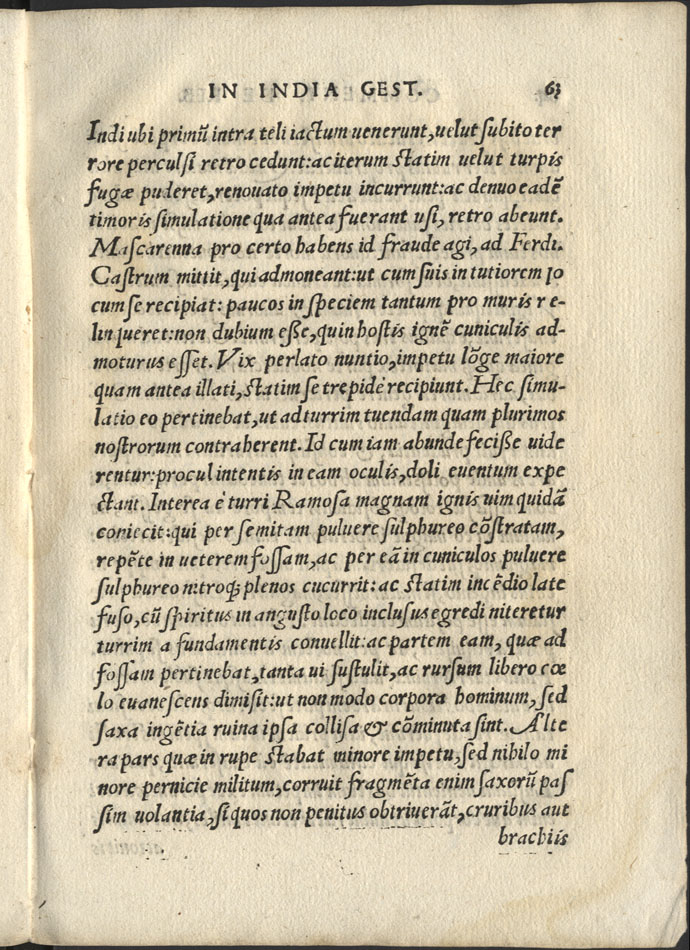 IN INDIA GEST. 63
Indi ubi primũ intra teli iactum uenerunt, uelut subito ter
rore perculsi retro cedunt: ac iterum statim uelut turpis
fugæ puderet, renouato impetu incurrunt: ac denuo eadẽ
timoris simulatione qua antea fuerant usi, retro abeunt.
Mascarenna pro certo habens id fraude agi, ad Ferdi.
Castrum mittit, qui admoneant: ut cum suis in tutiorem lo
cum se recipiat: paucos in speciem tantum pro muris re-
linqueret: non dubium eße, quin hostis ignẽ cuniculis ad-
moturus esset. Vix perlato nuntio, impetu lõge maiore
quam antea illati, statim se trepidè recipiunt. Hec simu-
latio eo pertinebat, ut ad turrim tuendam quam plurimos
nostrorum contraherent. Id cum iam abunde feciße uide
rentur: procul intentis in eam oculis, doli euentum expe
ctant. Interea è turri Ramosa magnam ignis uim quidã
coniecit: qui per semitam puluere sulphureo cõstratam,
repẽte in ueterem fossam, ac per eã in cuniculos puluere
sulphureo nitroq; plenos cucurrit: ac statim incẽdio late
fuso, cũ spiritus in angusto loco inclusus egredi niteretur
turrim a fundamentis conuellit: ac partem eam, quæ ad
fossam pertinebat, tanta ui sustulit, ac rursum libero cœ
lo euanescens dimisit: ut non modo corpora hominum, sed
saxa ingẽtia ruina ipsa collisa & cõminuta sint. Alte
ra pars quæ in rupe stabat minore impetu, sed nihilo mi
nore pernicie militum, corruit fragmẽta enim saxorũ pas
sim uolantia, si quos non penitus obtriuerãt, cruribus aut
brachiis